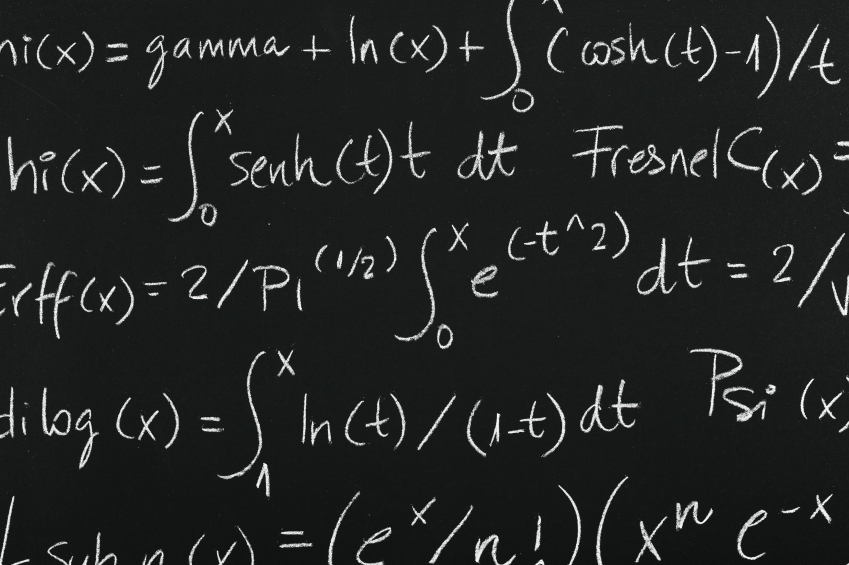 hi(x) = gamma + ln(x) + ∫₀ (cosh(t)-1)/t
hi(x) = ∫₀ˣ senh(t)t dt FresnelC(x) =
Erff(x) = 2/Pi^(1/2) ∫₀ˣ e^(-t^2) dt = 2/√
dilog(x) = ∫₁ˣ ln(t)/(1-t) dt Psi(x)
L sub n (x) = (eˣ/n!)(xⁿ e⁻ˣ